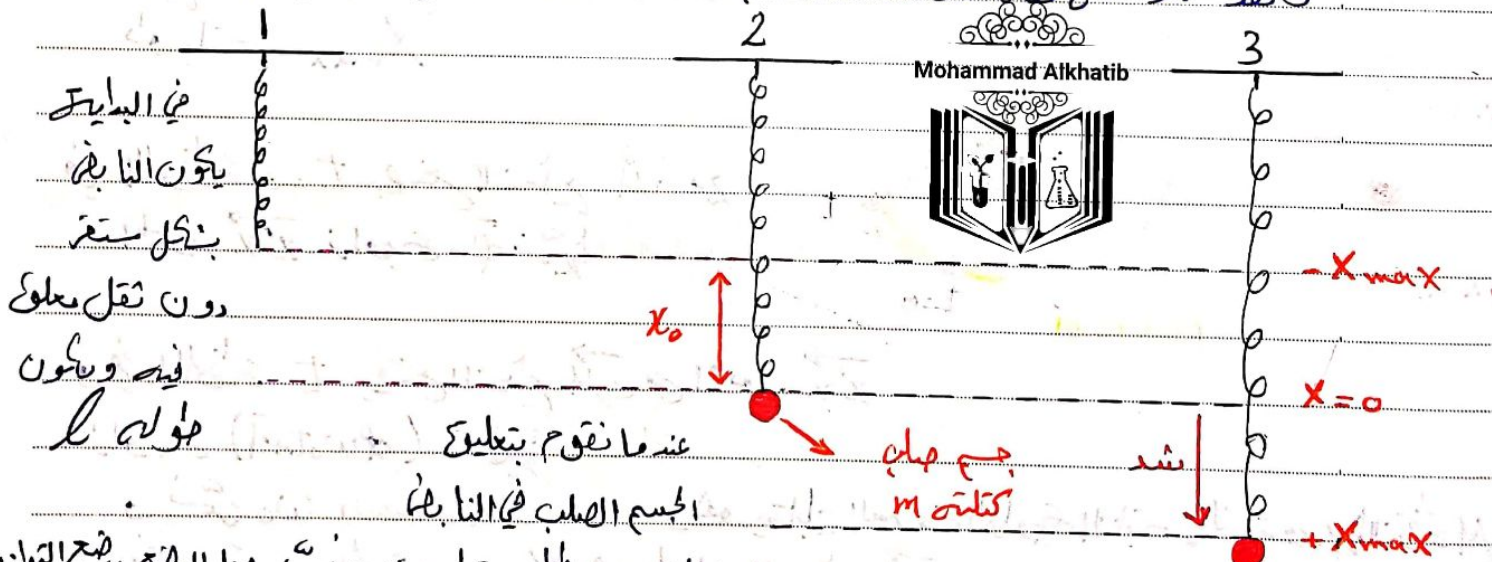 1
2
3
Mohammad Alkhatib
في البداية
يكون النابض
بشكل مستقر
دون ثقل معلق
فيه ويكون
طوله l
x₀
عندما نقوم بتعليق
الجسم الصلب في النابض
جسم صلب
كتلته m
شد
-Xmax
X=0
+Xmax